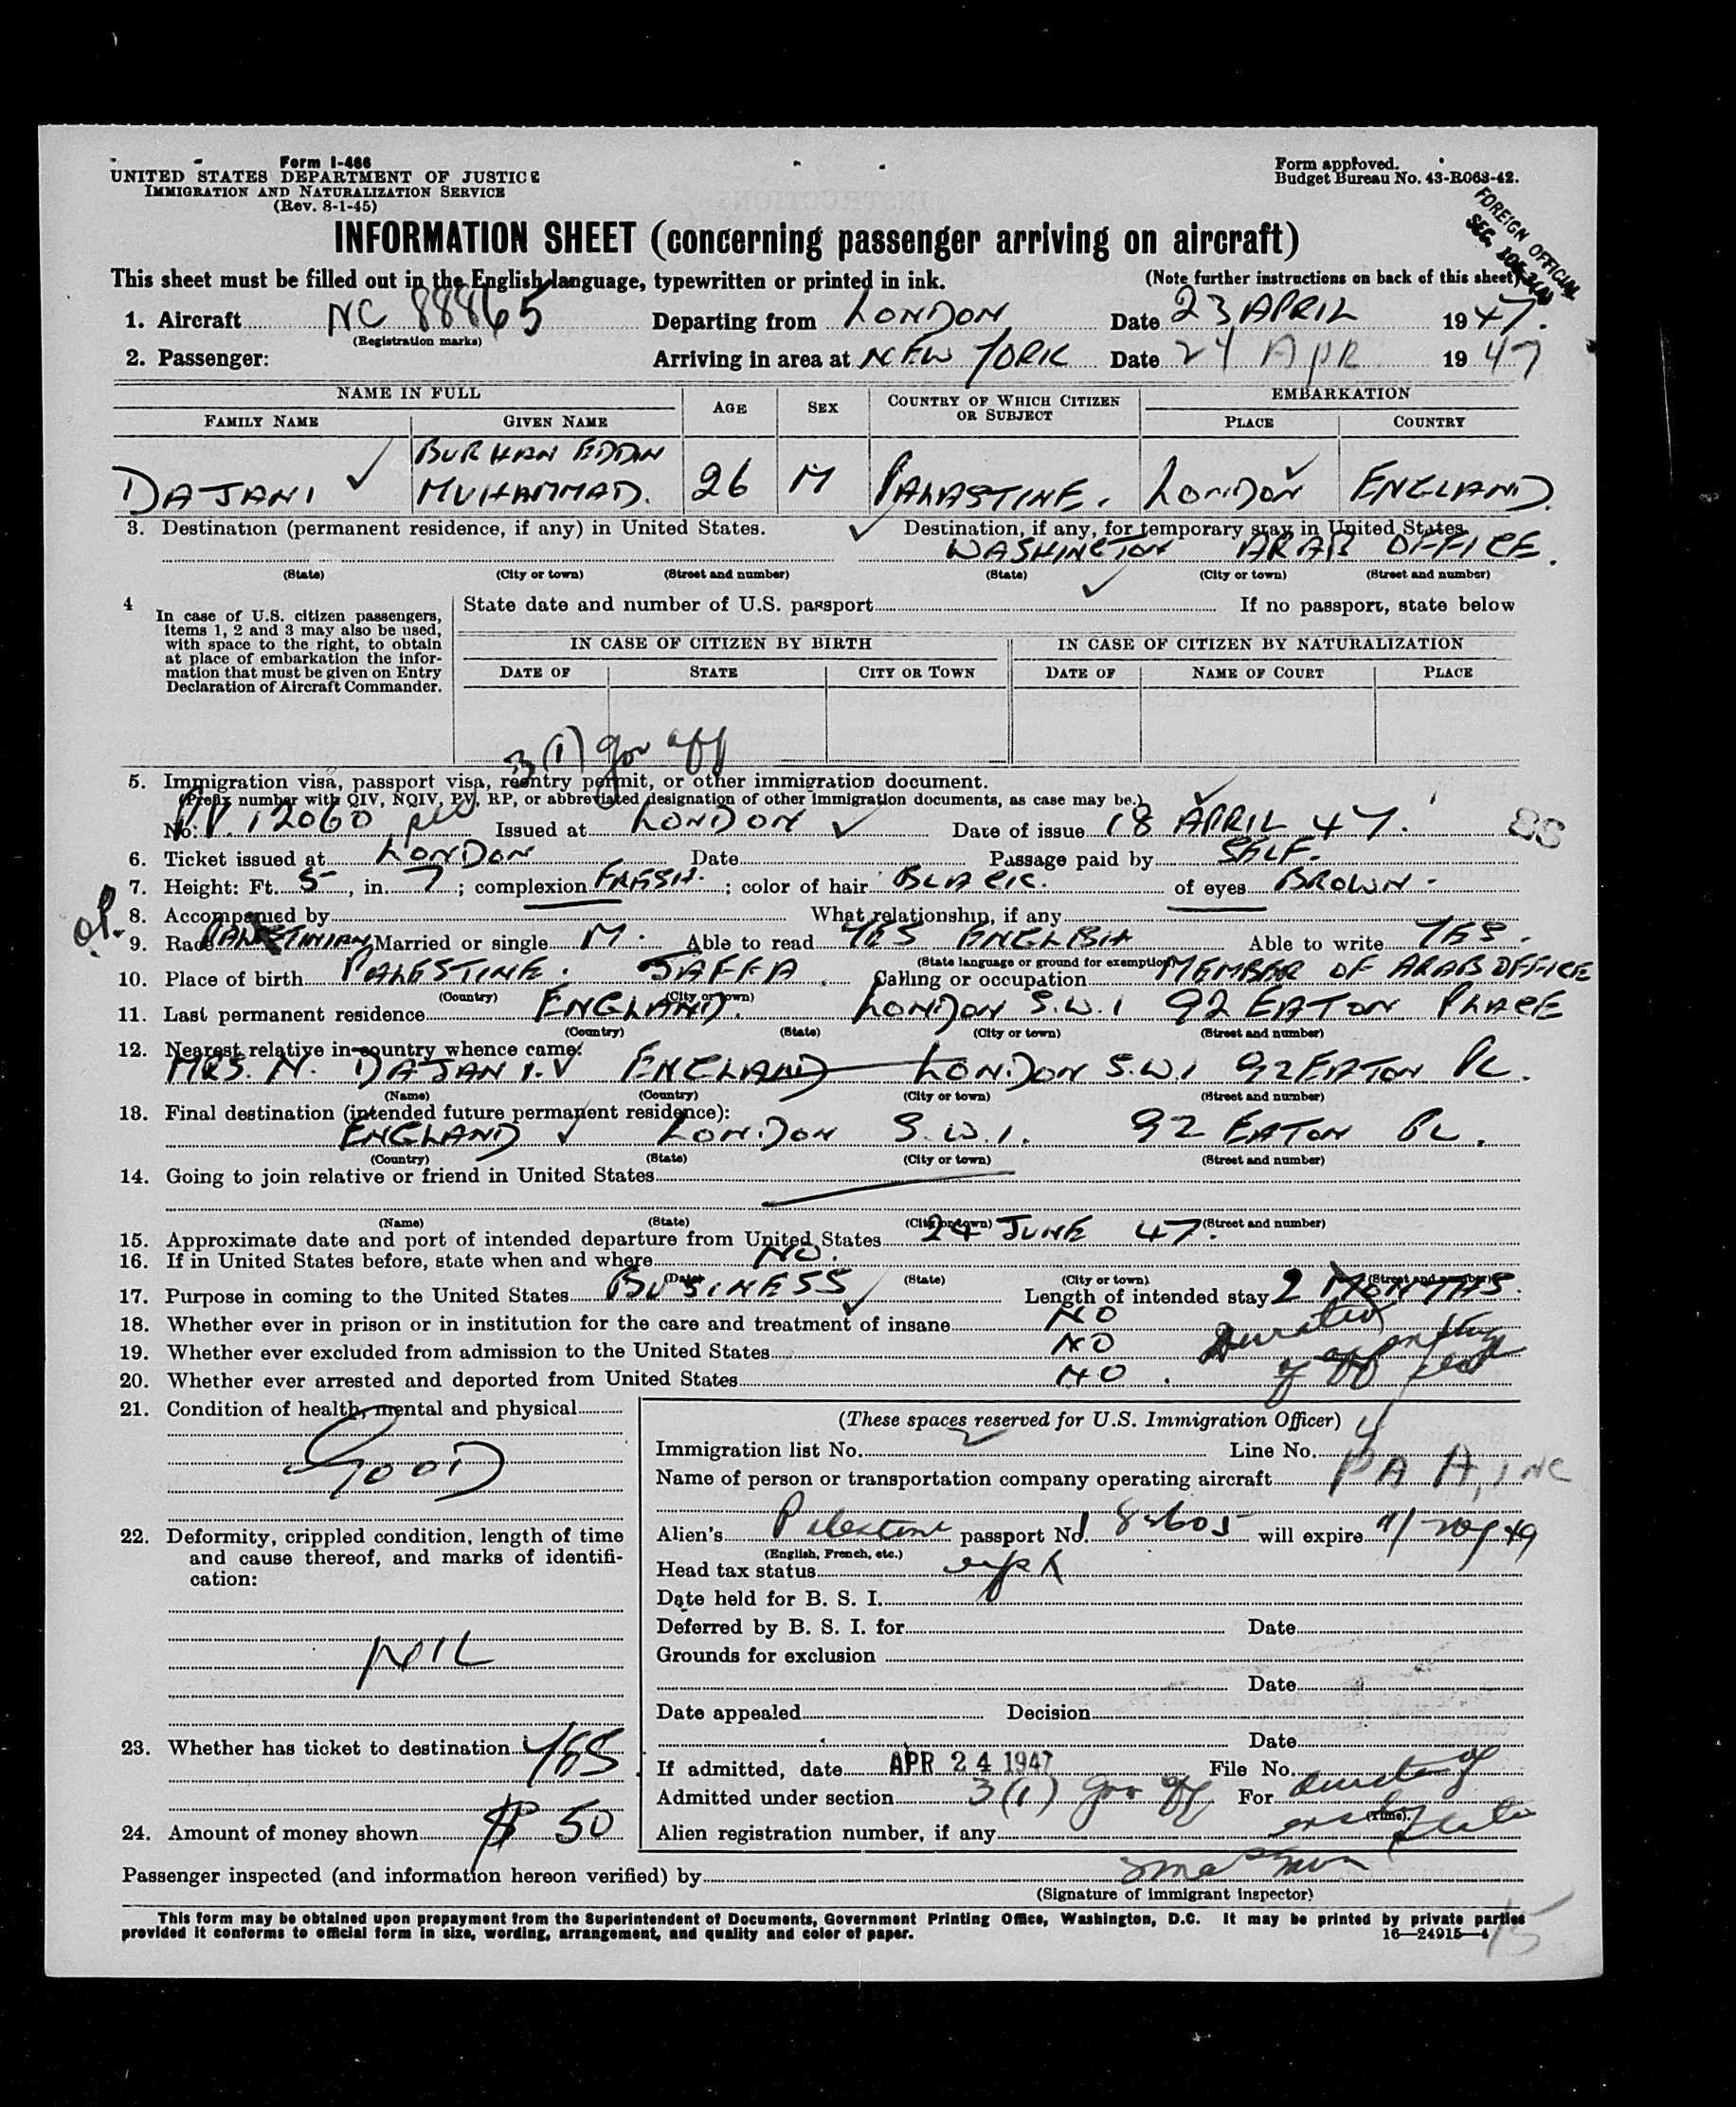 Form I-466
UNITED STATES DEPARTMENT OF JUSTICE
IMMIGRATION AND NATURALIZATION SERVICE
(Rev. 8-1-45)
Form approved.
Budget Bureau No. 43-R063-42.
FOREIGN OFFICIAL
INFORMATION SHEET (concerning passenger arriving on aircraft)
This sheet must be filled out in the English language, typewritten or printed in ink.
(Note further instructions on back of this sheet)
1. Aircraft NC 88865 Departing from LONDON Date 23 APRIL 1947.
(Registration marks)
2. Passenger: Arriving in area at NEW YORK Date 24 APR 1947
NAME IN FULL AGE SEX COUNTRY OF WHICH CITIZEN OR SUBJECT EMBARKATION
FAMILY NAME GIVEN NAME PLACE COUNTRY
BURHAN EDDIN
DAJANI MUHAMMAD. 26 M PALASTINE. LONDON ENGLAND.
3. Destination (permanent residence, if any) in United States. Destination, if any, for temporary stay in United States.
WASHINGTON ARAB OFFICE.
(State) (City or town) (Street and number) (State) (City or town) (Street and number)
4 In case of U.S. citizen passengers, items 1, 2 and 3 may also be used, with space to the right, to obtain at place of embarkation the information that must be given on Entry Declaration of Aircraft Commander.
State date and number of U.S. passport If no passport, state below
IN CASE OF CITIZEN BY BIRTH IN CASE OF CITIZEN BY NATURALIZATION
DATE OF STATE CITY OR TOWN DATE OF NAME OF COURT PLACE
3(1) gov off
5. Immigration visa, passport visa, reentry permit, or other immigration document.
(Prefix number with QIV, NQIV, PV, RP, or abbreviated designation of other immigration documents, as case may be.)
No. PV 12060 Issued at LONDON Date of issue 18 APRIL 47.
6. Ticket issued at LONDON Date Passage paid by SELF.
7. Height: Ft. 5, in. 7; complexion FRESH.; color of hair BLACK. of eyes BROWN.
8. Accompanied by What relationship, if any
9. Race PALESTINIAN Married or single M. Able to read YES ENGLISH Able to write YES.
(State language or ground for exemption)
10. Place of birth PALESTINE. JAFFA. Calling or occupation MEMBER OF ARAB OFFICE
(Country) (City or town)
11. Last permanent residence ENGLAND. LONDON S.W.1 92 EATON PLACE
(Country) (State) (City or town) (Street and number)
12. Nearest relative in country whence came:
MRS. N. DAJANI. ENGLAND LONDON S.W.1 92 EATON PL.
(Name) (Country) (City or town) (Street and number)
13. Final destination (intended future permanent residence):
ENGLAND LONDON S.W.1. 92 EATON PL.
(Country) (State) (City or town) (Street and number)
14. Going to join relative or friend in United States
(Name) (State) (City or town) (Street and number)
15. Approximate date and port of intended departure from United States 24 JUNE 47.
16. If in United States before, state when and where NO.
(Date) (State) (City or town) (Street and number)
17. Purpose in coming to the United States BUSINESS Length of intended stay 2 MONTHS.
18. Whether ever in prison or in institution for the care and treatment of insane NO
19. Whether ever excluded from admission to the United States NO
20. Whether ever arrested and deported from United States NO.
Duration
of off
21. Condition of health, mental and physical
GOOD
22. Deformity, crippled condition, length of time and cause thereof, and marks of identification:
NIL
23. Whether has ticket to destination YES
24. Amount of money shown $ 50
(These spaces reserved for U.S. Immigration Officer)
Immigration list No. 2 Line No. 4
Name of person or transportation company operating aircraft PAA, INC
Alien's Palestine passport No. will expire
(English, French, etc.)
Head tax status
Date held for B. S. I.
Deferred by B. S. I. for Date
Grounds for exclusion
Date
Date appealed Decision
Date
If admitted, date APR 24 1947 File No.
Admitted under section 3(1) gov off For duration of
(Time).
Alien registration number, if any
Passenger inspected (and information hereon verified) by
(Signature of immigrant inspector)
This form may be obtained upon prepayment from the Superintendent of Documents, Government Printing Office, Washington, D.C. It may be printed by private parties
provided it conforms to official form in size, wording, arrangement, and quality and color of paper.
16—24915—4
15